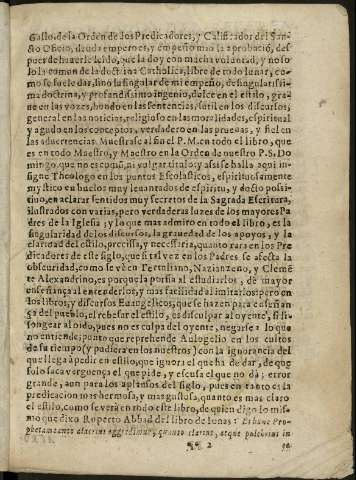 Gallo, de la Orden de los Predicadores, y Calificador del San-
cto Oficio, deuda empero es, y empeño mio la aprobació, des
pues de hauerle leido, que la doy con mucha voluntad, y no so
lo la comun de la dotrina Catholica, libre de todo lunar, co-
mo se suele dar, sino la singular de mi empeño, de singularissi-
ma doctrina, y profundissimo ingenio, dulce en el estilo, gra-
ue en las vozes, hondo en las sentencias, sutil en los discursos,
general en las noticias, religioso en las moralidades, espiritual
y agudo en los conceptos, verdadero en las prueuas, y fiel en
las aduertencias. Muestrase al fin el P.M. en todo el libro, que
es en todo Maestro, y Maestro en la Orden de nuestro P.S. Do
mingo, que no es comũ, ni vulgar titulo; y assi se halla aqui in-
signe Theologo en los puntos Escolasticos, espiritucamente
mystico en buelos muy leuantados de espiritu, y docto posi-
tiuo, en aclarar sentidos muy secretos de la Sagrada Escritura,
ilustrados con varias, pero verdaderas luzes de los mayores Pa
dres de la Iglesia; y lo que mas admiro en todo el libro, es la
singularidad de los discursos, la grauedad de los apoyos, y la
claridad del estilo, precissa, y necessaria, quanto rara en los Pre
dicadores de este siglo, que si tal vez en los Padres se afecta la
obscuridad, como se vè en Tertuliano, Nazianzeno, y Clemẽ
te Alexandrino, es porque la porfia al estudiarlos, dè mayor
enseñança al entenderlos, y mas facilidad al imitarlos: pero en
los libros, y discursos Euangelicos, que se hazen para enseñan
ça del pueblo, el rebesar el estilo, es disculpar al oyente, si li-
songear al oido, pues no es culpa del oyente, negarse a lo que
no entiende; punto que reprehende Aulogelio en los cultos
de su tiempo (y pudiera en los nuestros) con la ignorancia del
que llega à pedir en estilo, que ignora el que ha de dar, de que
solo saca verguença el que pide, y escusa el que no dà; error
grande, aun para los aplausos del siglo, pues en tanto es la
predicacion mas hermosa, y mas gustosa, quanto es mas claro
el estilo, como se verà en todo este libro, de quien digo lo mis
mo que dixo Ruperto Abbad del libro de Ionas: Et hunc Pro-
phetam tanto alacrius aggredimur, quanto clarius, atque pulchrius in
¶¶ 2